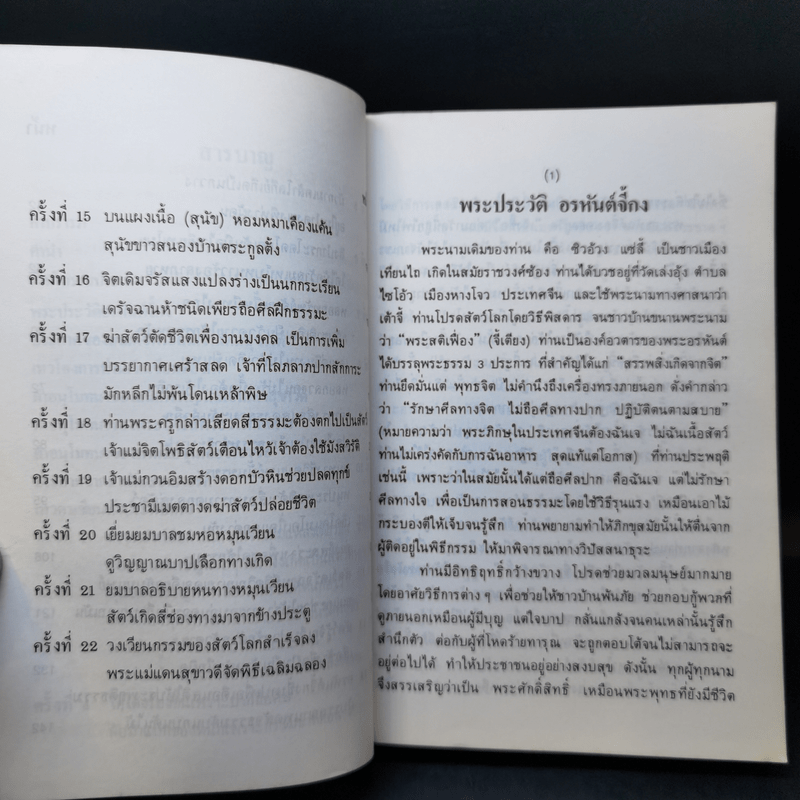 ครั้งที่ 15 บนแผงเนื้อ (สุนัข) หอมหมาเคืองแค้น
สุนัขขาวสนองบ้านตระกูลตั้ง
ครั้งที่ 16 จิตเดิมจรัสแสงแปลงร่างเป็นนกกระเรียน
เดรัจฉานห้าชนิดเพียรถือศีลฝึกธรรมะ
ครั้งที่ 17 ฆ่าสัตว์ตัดชีวิตเพื่องานมงคล เป็นการเพิ่ม
บรรยากาศเศร้าสลด เจ้าที่โลภลาภปากสักการะ
มักหลีกไม่พ้นโดนเหล้าพิษ
ครั้งที่ 18 ท่านพระครูกล่าวเสียดสีธรรมะต้องตกไปเป็นสัตว์
เจ้าแม่จิตโพธิสัตว์เตือนไหว้เจ้าต้องใช้มังสวิรัติ
ครั้งที่ 19 เจ้าแม่กวนอิมสร้างดอกบัวหินช่วยปลดทุกข์
ประชามีเมตตางดฆ่าสัตว์ปล่อยชีวิต
ครั้งที่ 20 เยี่ยมยมบาลชมหอหมุนเวียน
ดูวิญญาณบาปเลือกทางเกิด
ครั้งที่ 21 ยมบาลอธิบายหนทางหมุนเวียน
สัตว์เกิดสี่ช่องทางมาจากข้างประตู
ครั้งที่ 22 วงเวียนกรรมของสัตว์โลกสำเร็จลง
พระแม่แดนสุขาวดีจัดพิธีเฉลิมฉลอง
(1)
พระประวัติ อรหันต์จี้กง
พระนามเดิมของท่าน คือ ซิวอ้วง แซ่ลี้ เป็นชาวเมือง
เทียนไถ เกิดในสมัยราชวงศ์ซ้อง ท่านได้บวชอยู่ที่วัดเล่งอุ้ง ตำบล
ไซโอ้ว เมืองหางโจว ประเทศจีน และใช้พระนามทางศาสนาว่า
เต้าจี้ ท่านโปรดสัตว์โลกโดยวิธีพิสดาร จนชาวบ้านขนานพระนาม
ว่า “พระสติเฟื่อง” (จี้เตียง) ท่านเป็นองค์อวตารของพระอรหันต์
ได้บรรลุพระธรรม 3 ประการ ที่สำคัญได้แก่ “สรรพสิ่งเกิดจากจิต”
ท่านยึดมั่นแต่ พุทธจิต ไม่คำนึงถึงเครื่องทรงภายนอก ดั่งคำกล่าว
ว่า “รักษาศีลทางจิต ไม่ถือศีลทางปาก ปฏิบัติตนตามสบาย”
(หมายความว่า พระภิกษุในประเทศจีนต้องฉันเจ ไม่ฉันเนื้อสัตว์
ท่านไม่เคร่งคัดกับการฉันอาหาร สุดแท้แต่โอกาส) ที่ท่านประพฤติ
เช่นนี้ เพราะว่าในสมัยนั้นได้แต่ถือศีลปาก คือฉันเจ แต่ไม่รักษา
ศีลทางใจ เพื่อเป็นการสอนธรรมะโดยใช้วิธีรุนแรง เหมือนเอาไม้
กระบองตีให้เจ็บจนรู้สึก ท่านพยายามทำให้ภิกขุสมัยนั้นให้ตื่นจาก
ผู้ติดอยู่ในพิธีกรรม ให้มาพิจารณาทางวิปัสสนาธุระ
ท่านมีอิทธิฤทธิ์กว้างขวาง โปรดช่วยมวลมนุษย์มากมาย
โดยอาศัยวิธีการต่าง ๆ เพื่อช่วยให้ชาวบ้านพ้นภัย ช่วยกอบกู้พวกที่
ดูภายนอกเหมือนผู้มีบุญ แต่ใจบาป กลั่นแกล้งจนคนเหล่านั้นรู้สึก
สำนึกตัว ต่อกับผู้ที่โหดร้ายทารุณ จะถูกตอบโต้จนไม่สามารถจะ
อยู่ต่อไปได้ ทำให้ประชาชนอยู่อย่างสงบสุข ดังนั้น ทุกผู้ทุกนาม
จึงสรรเสริญว่าเป็น พระศักดิ์สิทธิ์ เหมือนพระพุทธที่ยังมีชีวิต